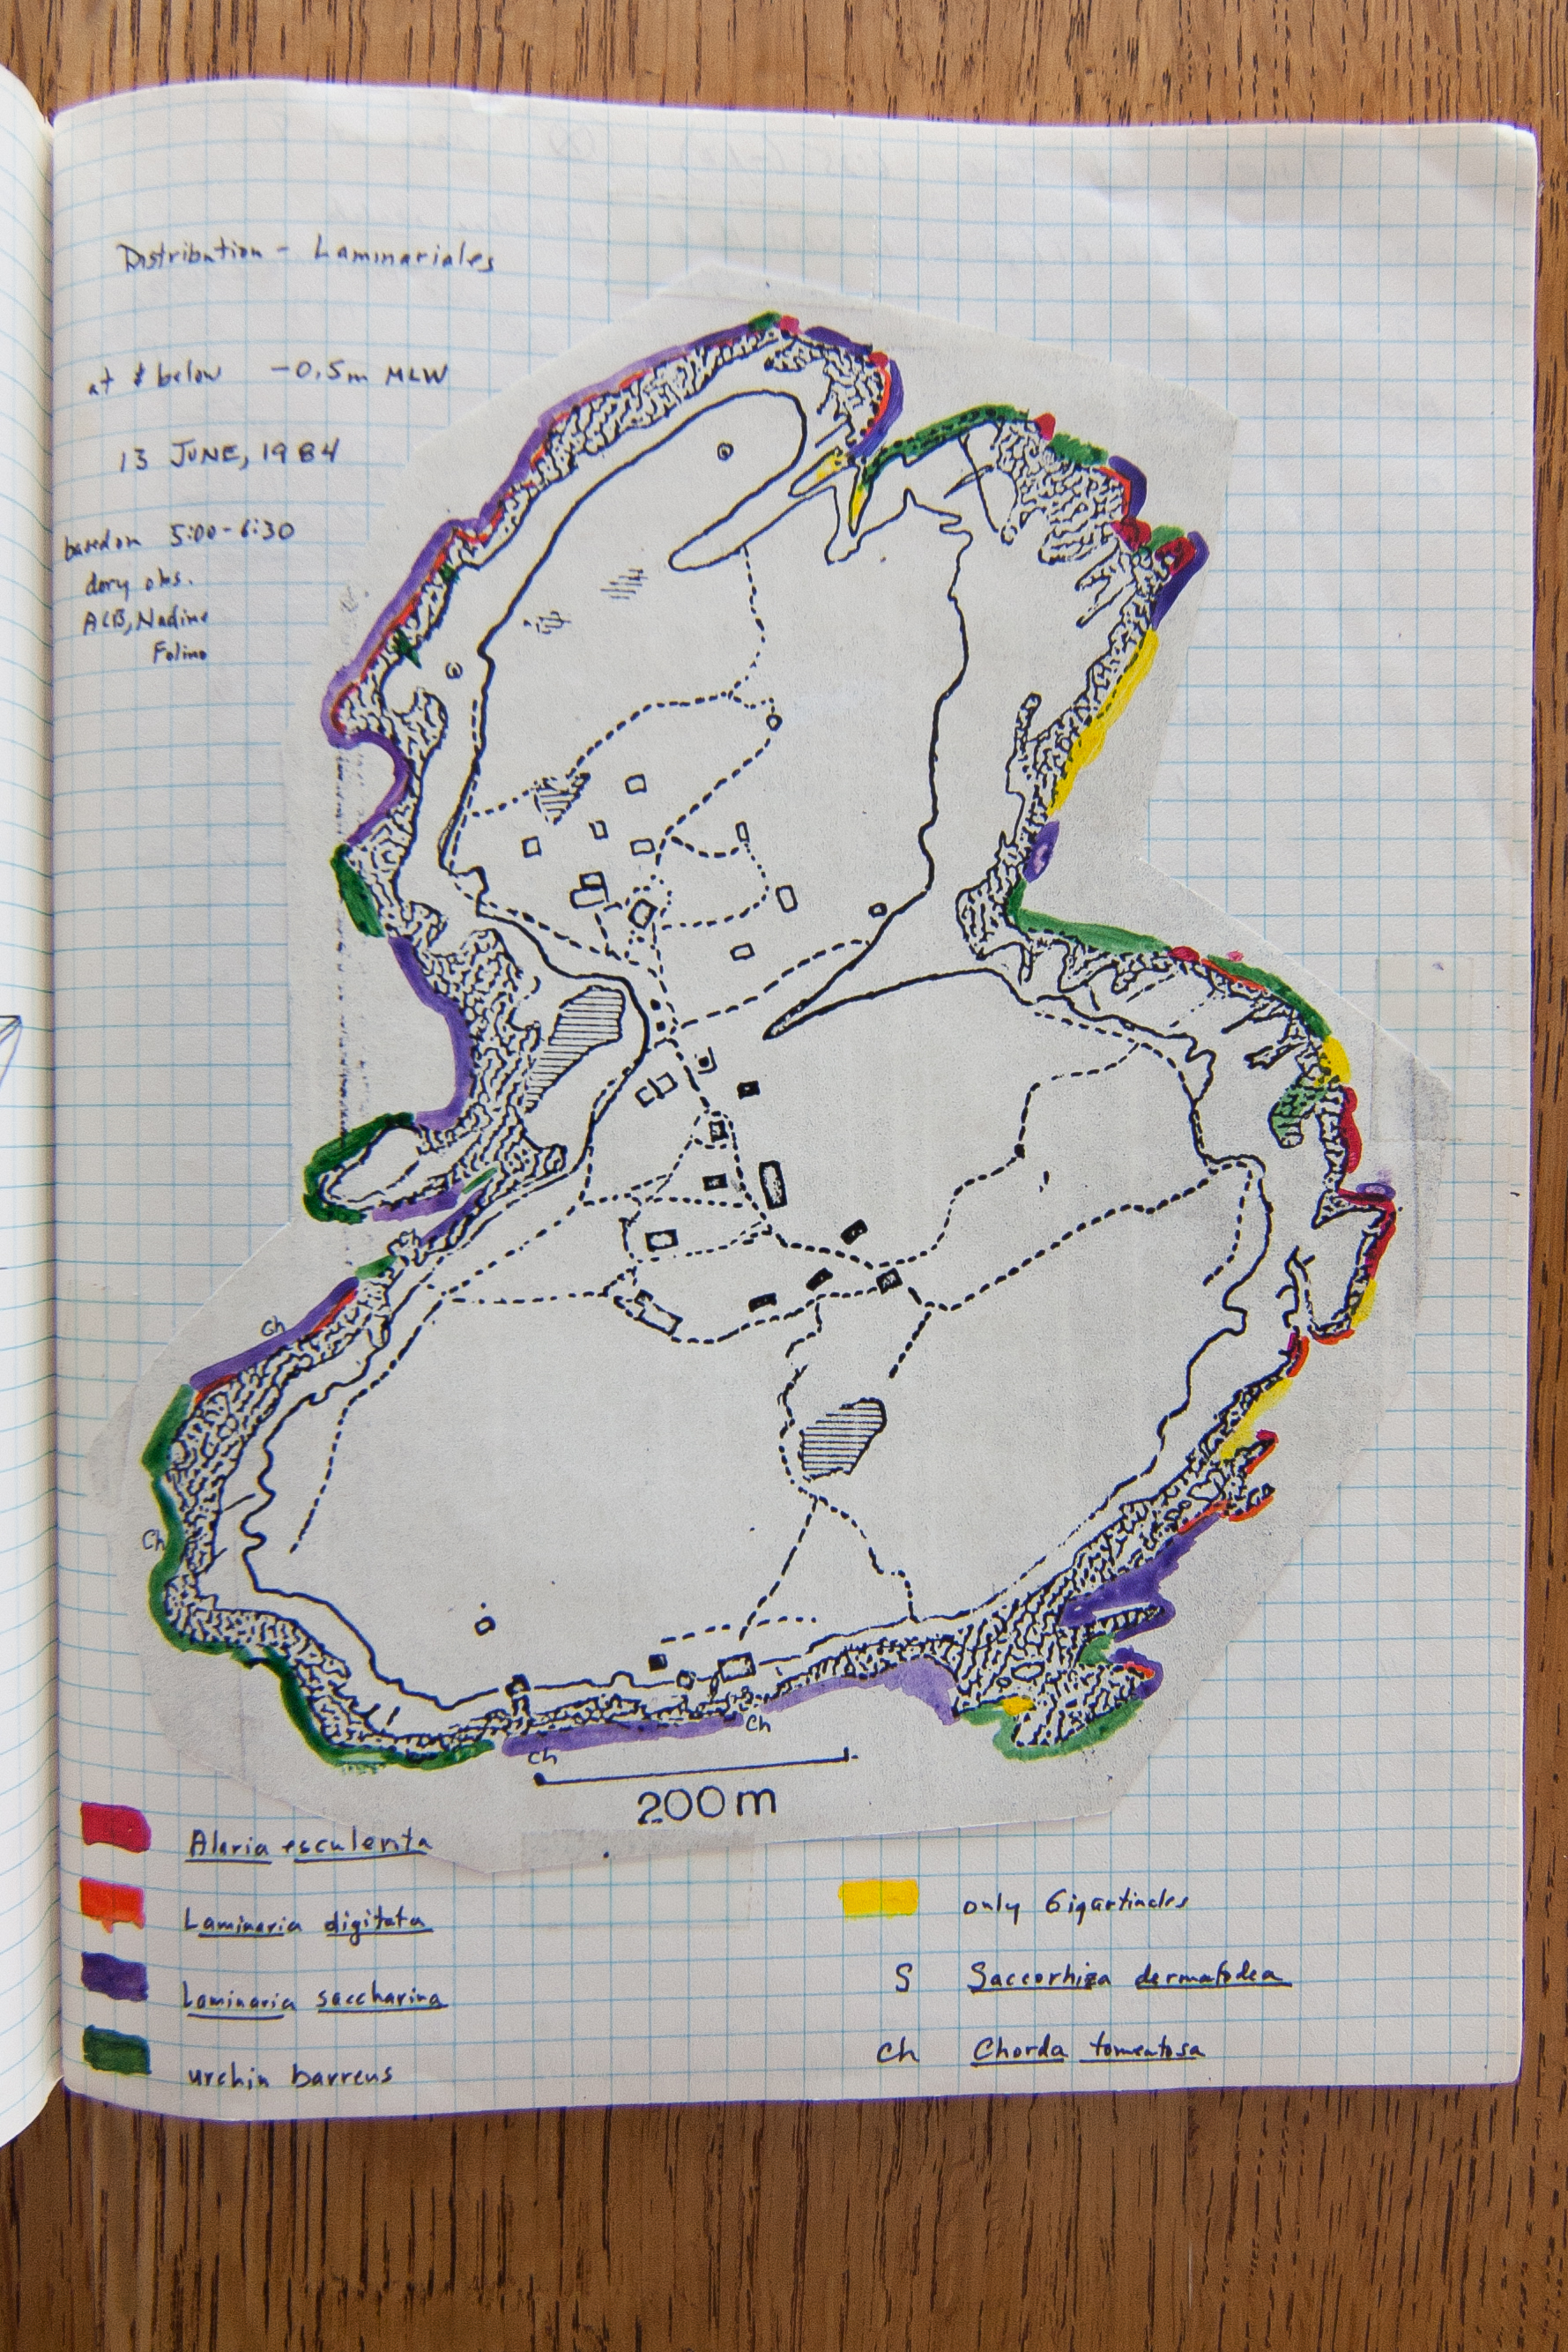 Distribution - Laminariales
at & below -0.5m MLW
13 JUNE, 1984
based on 5:00-6:30
dory obs.
ACB, Nadine
Folino
Ch
Ch
Ch
Ch
Ch
200m
Alaria esculenta
Laminaria digitata
Laminaria saccharina
urchin barrens
only Gigartinales
S Saccorhiza dermatodea
Ch Chorda tomentosa